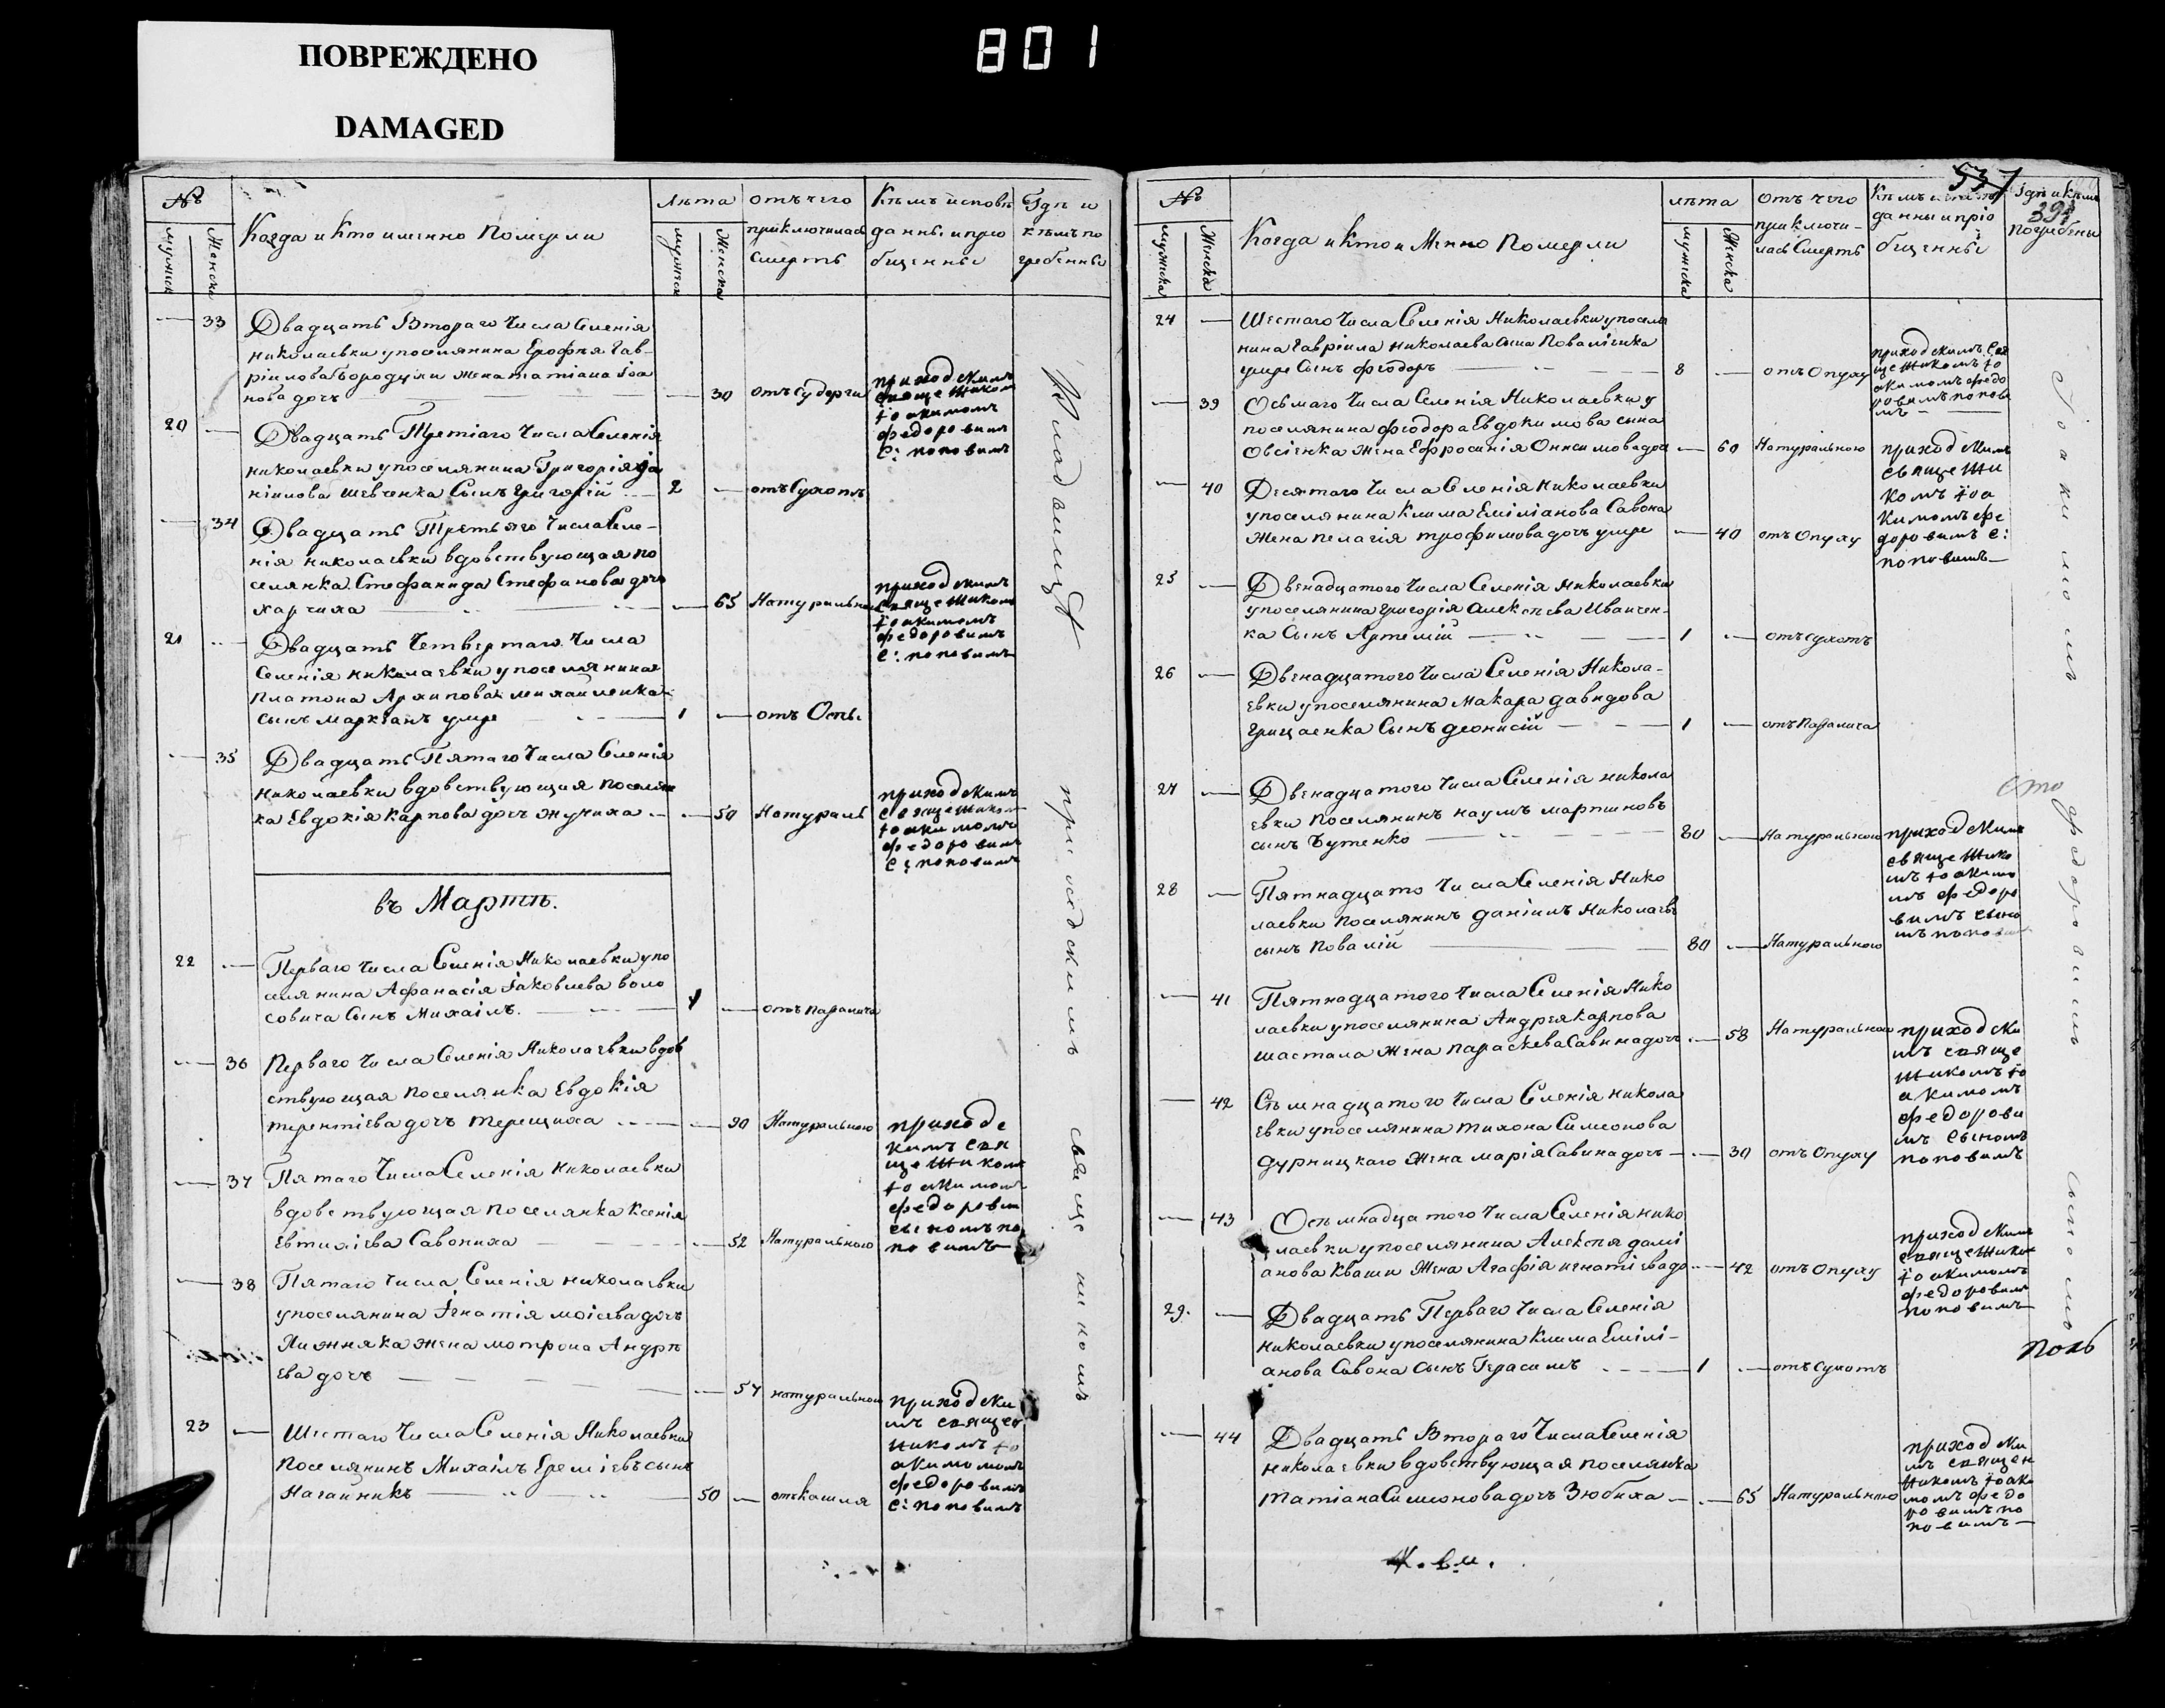 ПОВРЕЖДЕНО
DAMAGED
801
№
мужеск
Женска
Когда и Кто именно Померли
Лѣта
мужеск
Женска
отъ чего
приключилась
смерть
Кѣмъ исповѣ
данны и прио
бщенны
Гдѣ и
кѣмъ по
гребенны
— 33 Двадцать Втораго Числа Селенія
николаевки у поселянина Ерофѣя Гав-
ріилова Бородули жена татіана Іоа
нова дочь — 30 отъ Судорги
приходскимъ
священиком
Іоакимомъ
федоровимъ
С: поповимъ
20 — Двадцать Третіаго Числа Селенія
николаевки у поселянина Григорія
Шевченка Сынъ Григорій — 2 — отъ Сухотъ
— 34 Двадцать Третьяго Числа Селе-
нія николаевки вдовствующая по
селянка Стефанида Стефанова дочь
харчиха — 65 Натуральной
приходскимъ
священиком
Іоакимомъ
федоровимъ
С: поповимъ
21 — Двадцать Четвертаго Числа
Селенія николаевки у поселянина
Платона Архипова михайленка
сынъ маркіанъ умре — 1 — отъ Оспы
— 35 Двадцать Пятаго Числа Селенія
николаевки вдовствующая поселян
ка Евдокія Карпова дочь жучиха — 50 Натураль
приходскимъ
священиком
Іоакимомъ
федоровимъ
С: поповимъ
въ Мартѣ.
22 — Перваго Числа Селенія Николаевки у по
селянина Афанасія Іаковлева воло
совича Сынъ Михаілъ. — 1 — отъ паралича
— 36 Перваго Числа Селенія Николаевки вдов
ствующая поселянка Евдокія
терентіева дочь терещиха — 90 Натурального
приходс
кимъ свя
щеникомъ
Іоакимомъ
федорови
сыномъ по
повимъ
— 37 Пятаго Числа Селенія николаевки
вдовствующая поселянка Ксенія
Евтихіева Савониха — 52 Натурального
— 38 Пятаго Числа Селенія николаевки
у поселянина Ігнатія моісева дочь
Лижняка жена мотрона Андрѣ
ева дочь — 57 натуральной
приходски
мъ священ
никомъ Іо
акимомъ
федоровимъ
С: поповимъ
23 — Шестаго Числа Селенія Николаевки
Поселянинъ Михаілъ Ереміевъ сынъ
Нагайникъ — 50 — отъ кашля
Младенцъ приходскимъ священикомъ
537
394
№
мужска
Женска
Когда и Кто и Менно Померли
лѣта
мужска
Женска
отъ чего
приключи-
лась Смерть
Кѣмъ
данны и пріо
бщенны
Гдѣ и Кѣмъ
погребены
24 — Шестаго Числа Селенія Николаевки у поселя
нина Гавріила николаева сына Поваліенка
умре Сынъ феодоръ — 8 — отъ Опуху
приходскимъ свя
щеникомъ Іо
акимомъ федо
ровимъ попов
мъ —
— 39 Осьмаго Числа Селенія Николаевки у
поселянина феодора Евдокимова сына
Овсіенка жена Ефросинія Онисимова доч — 60 Натурального
приходскимъ
священи
комъ Іоа
кимомъ фе
доровимъ С:
поповимъ —
— 40 Десятаго Числа Селенія николаевки
у поселянина Клима Еміліанова Савона
жена пелагія трофимова дочь умре — 40 отъ Опуху
25 — Двенадцатого Числа Селенія николаевки
у поселянина Григорія алексѣева Иванчен-
ка Сынъ Артемій — 1 — отъ сухотъ
26 — Двенадцатого Числа Селенія Никола-
евки у поселянина Макара давидова
Грицаенка Сынъ деонисій — 1 — отъ Паралича
27 — Двенадцатого Числа Селенія никола
евки поселянинъ наумъ мартиновъ
сынъ Бутенко — 80 — Натурального
приходскимъ
священико
мъ Іоакимо
мъ федоро
вимъ сыно
мъ попов
28 — Пятнадцато Числа Селенія Нико
лаевки поселянинъ даніилъ николаевъ
сынъ повалій — 80 — Натурального
— 41 Пятнадцатого Числа Селенія Нико
лаевки у поселянина Андрея карпова
шастала жена параскева Савина дочь — 58 Натурального
приходски
мъ свяще
никомъ Іо
акимомъ
федорови
мъ Сыномъ
поповимъ
— 42 Семнадцатого Числа Селенія никола
евки у поселянина тихона Симеонова
дурницкаго жена марія Савина дочь — 30 отъ Опуху
— 43 Осьмнадцатого Числа Селенія нико
лаевки у поселянина Алексѣя дамі
анова Кваши жена Агафія игнатіева до — 42 отъ Опуху
приходскимъ
священики
Іоакимомъ
федоровимъ
поповимъ
29. — Двадцать Перваго Числа Селенія
николаевки у поселянина Клима Емілі-
анова Савона сынъ Герасимъ — 1 — отъ Сухотъ
— 44 Двадцать Втораго Числа Селенія
николаевки вдовствующая поселянка
татіана Симеонова дочь Зюбиха — 65 Натурального
приходски
мъ священ
никомъ Іоаки
момъ федо
ровимъ по
повимъ —
Іоакимомъ
федоровимъ
сыномъ
попъ